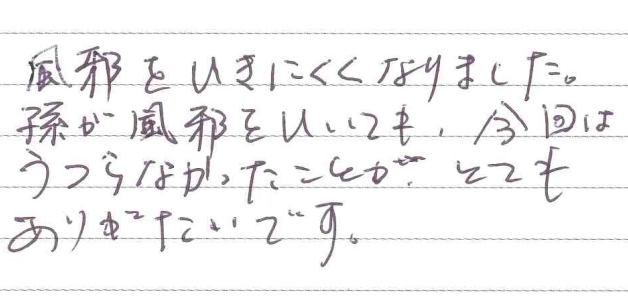 風邪をひきにくくなりました。
孫が風邪をひいても、今回は
うつらなかったことが、とても
ありがたいです。